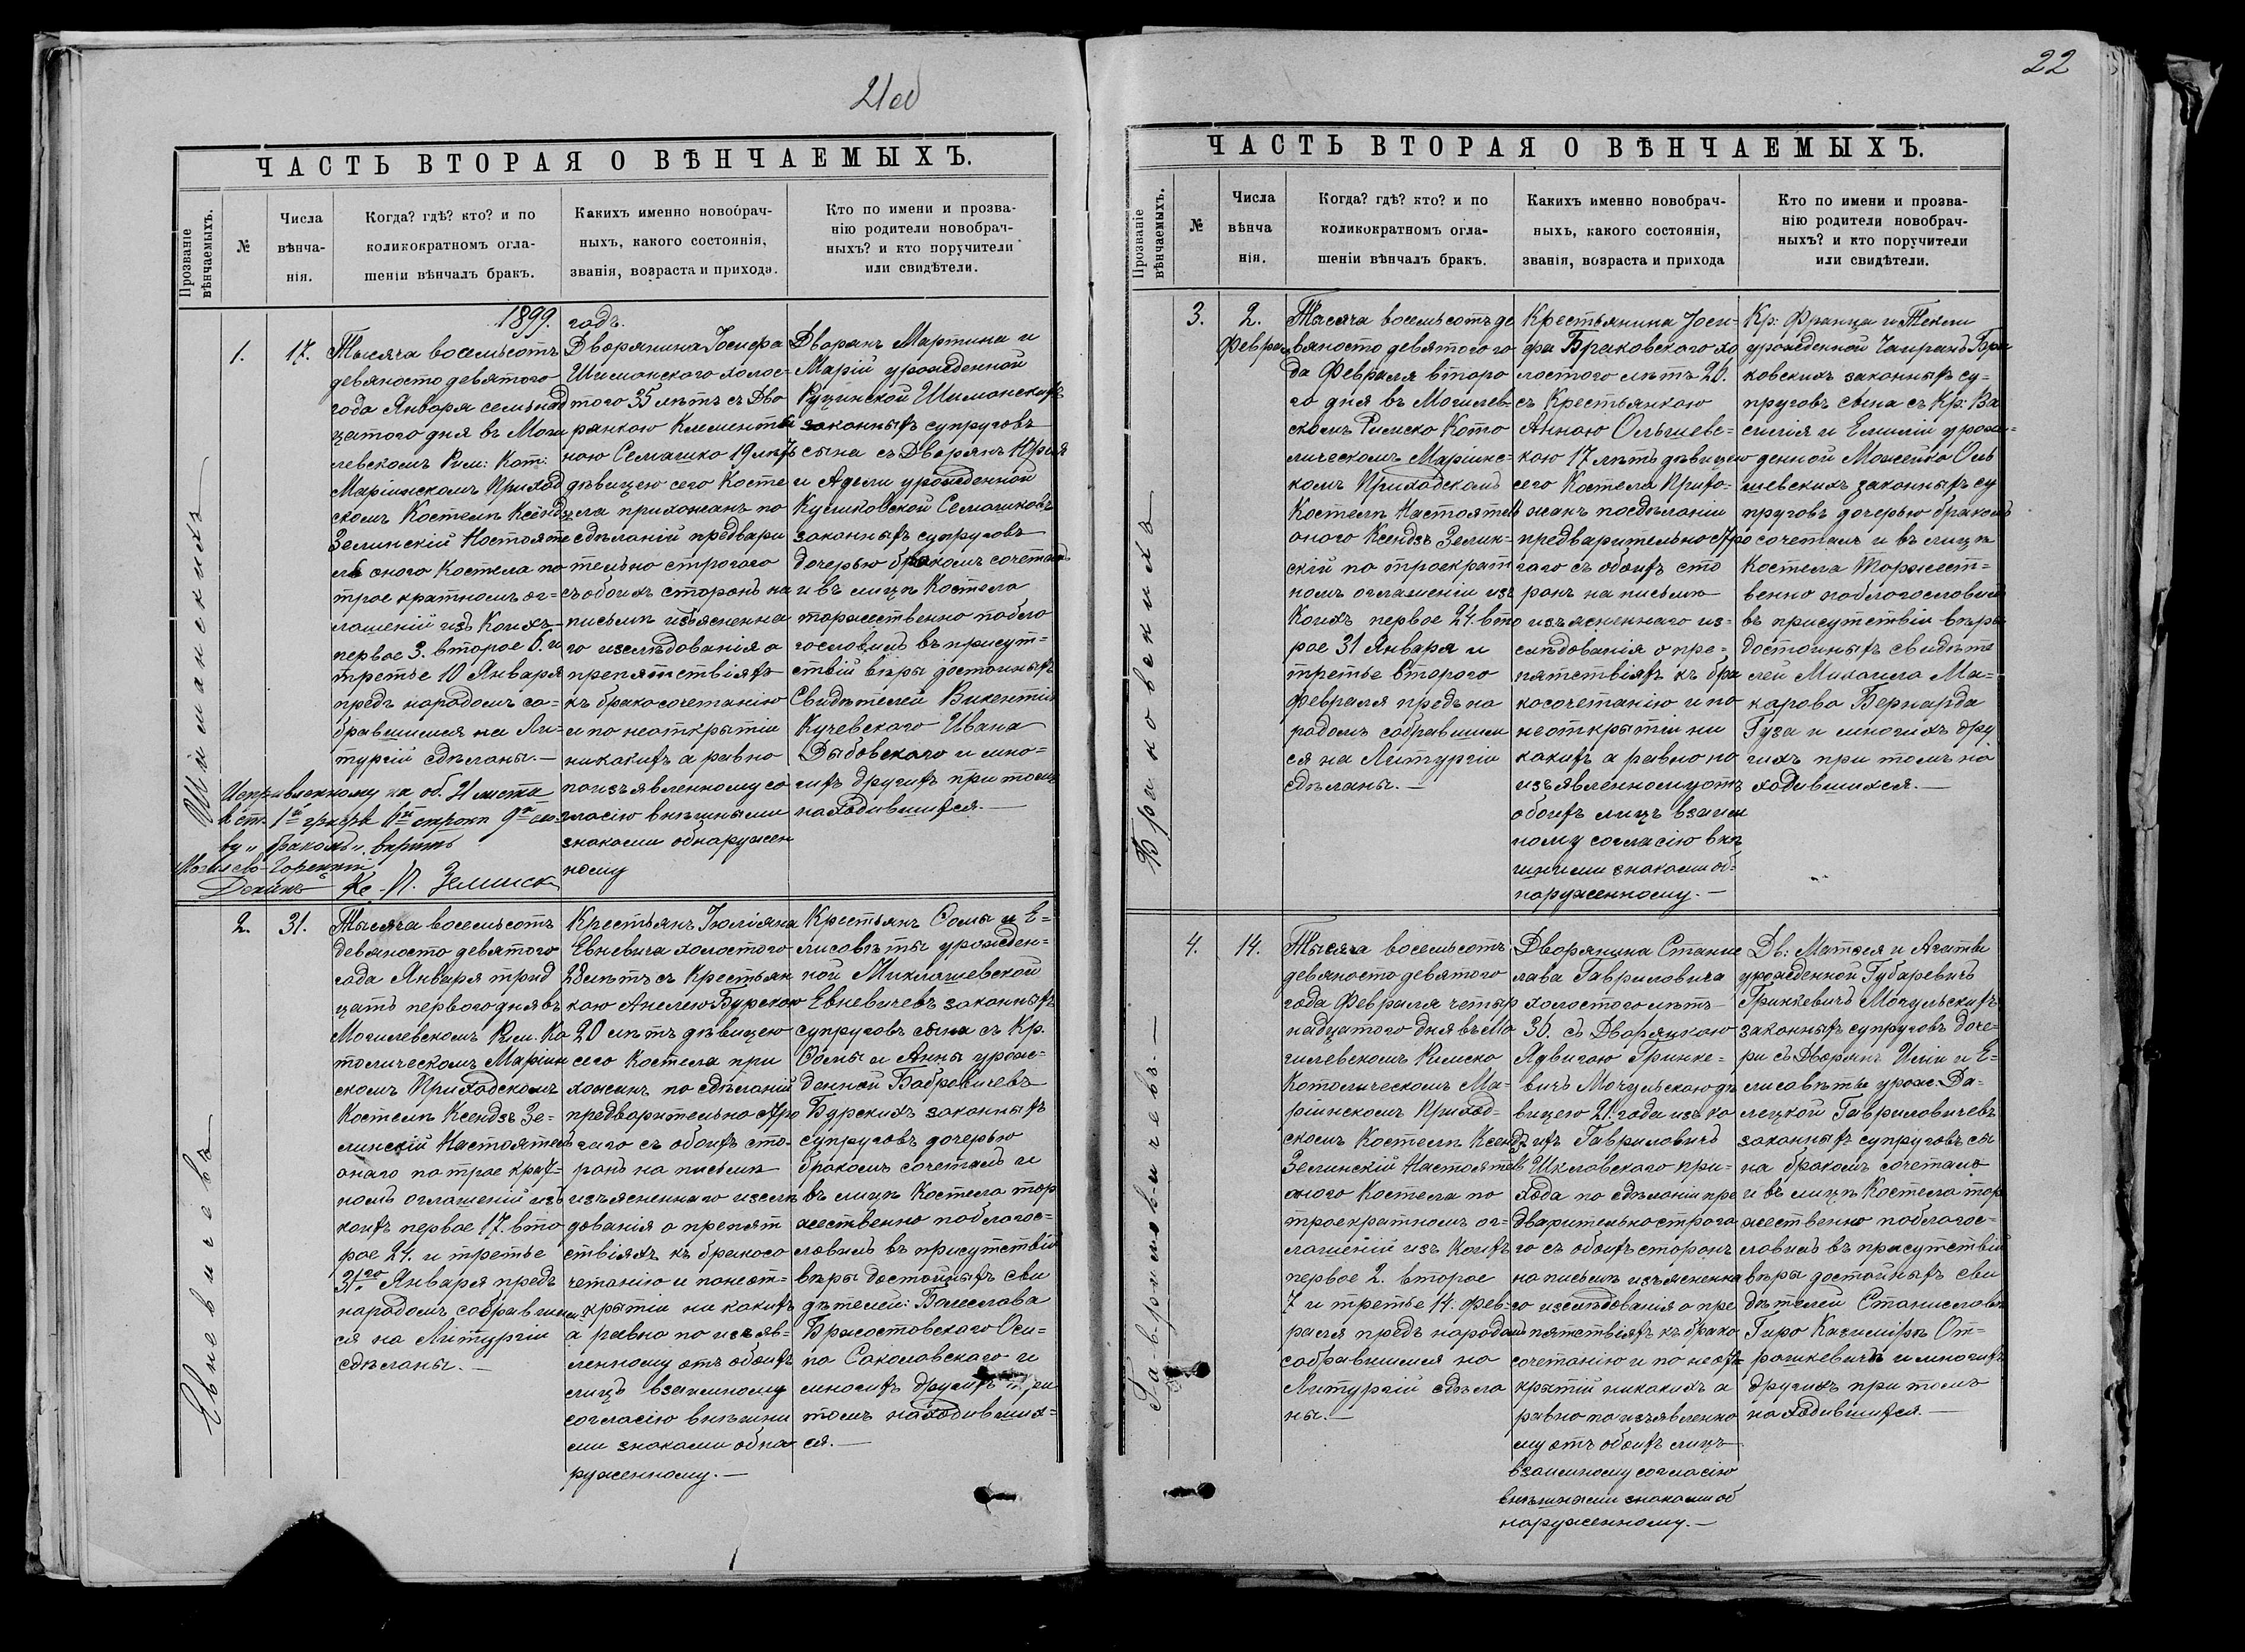 21об
ЧАСТЬ ВТОРАЯ О ВѢНЧАЕМЫХЪ.
Прозваніе
вѣнчаемыхъ.
№
Числа
вѣнча-
нія.
Когда? гдѣ? кто? и по
коликократномъ огла-
шеніи вѣнчалъ бракъ.
Какихъ именно новобрач-
ныхъ, какого состоянія,
званія, возраста и прихода.
Кто по имени и прозва-
нію родители новобрач-
ныхъ? и кто поручители
или свидѣтели.
1899. годъ.
Шиманскихъ
1.
17.
Тысяча восемьсотъ
девяносто девятого
года Января семьнад
цатого дня въ Моги
левскомъ Рим: Кат:
Маріинскомъ Приход
скомъ Костелѣ Ксендз
Зелинскій Настояте
ль оного Костела по
трое кратномъ ог-
лашеній изъ Коихъ
первое 3. второе 6. и
третье 10 Января
предъ народомъ со-
бравшимся на Ли-
тургіи сдѣланы.—
Дворянина Іосифа
Шиманского холос-
того 35 лѣтъ съ Дво
рянкою Клементи
ною Семашко 19 лѣтъ
дѣвицею сего Косте
ла прихожанъ по
сдѣланій предвари
тельно строгого
съ обоихъ сторонъ на
письмѣ изъясненна
го изслѣдованія о
препятствіяхъ
къ бракосочетанію
и по неоткрытіи
никакихъ а равно
по изъявленному со
гласію внѣшными
знаками обнаружен
ному
Дворянъ Мартина и
Маріи урожденной
Руцинской Шиманскихъ
законныхъ супруговъ
сына съ Дворянъ Юрія
и Адели урожденной
Куликовской Семашковъ
законныхъ супруговъ
дочерью бракомъ сочеталъ
и въ лицѣ Костела
торжественно побло
гословилъ въ присут-
ствіи вѣры достойныхъ
Свидѣтелей Викентія
Кучевского Ивана
Дыбовскаго и мно-
гихъ другихъ при томъ
находившихся.—
Исправленному на об. 21 листа
бракомъ вѣрить
Могилево-Горецкій
Деканъ Кс. П. Зелинск
Евневичевъ
2.
31.
Тысяча восемьсотъ
девяносто девятого
года Января трид
цать первого дня въ
Могилевскомъ Рим. Ка
толическомъ Маріин
скомъ Приходскомъ
Костелѣ Ксендзъ Зе-
линскій Настоятель
онаго по трое крат-
номъ оглашеній изъ
коихъ первое 17. вто
рое 24. и третье
31го Января предъ
народомъ собравшим
ся на Литургіи
сдѣланы.—
Крестьянъ Іюліяна
Евневича холостого
28 лѣтъ съ Крестьян
кою Анелею Бурскою
20 лѣтъ дѣвицею
сего Костела при
хожанъ по сдѣланій
предварительно стро
гаго съ обоихъ сто-
ронъ на письмѣ
изъясненнаго изслѣ
дованія о препят
ствіяхъ къ бракосо
четанію и по неот-
крытіи ни какихъ
а равно по изъяв-
ленному отъ обоихъ
лицъ взаимному
согласію внѣшни
ми знаками обна
руженному.—
Крестьянъ Ѳомы и Е-
лисоветы урожден-
ной Миклашевской
Евневичевъ законныхъ
супруговъ сына съ Кр.
Ѳомы и Анны урож-
денной Бобровичевъ
Бурскихъ законныхъ
супруговъ дочерью
бракомъ сочеталъ и
въ лицѣ Костела тор
жественно поблагос-
ловилъ въ присутствіи
вѣры достойныхъ сви
дѣтелей: Болеслава
Бржостовскаго Оси-
па Соколовскаго и
многихъ другихъ при
томъ находивших-
ся.—
22
ЧАСТЬ ВТОРАЯ О ВѢНЧАЕМЫХЪ.
Прозваніе
вѣнчаемыхъ.
№
Числа
вѣнча
нія.
Когда? гдѣ? кто? и по
коликократномъ огла-
шеніи вѣнчалъ бракъ.
Какихъ именно новобрач-
ныхъ, какого состоянія,
званія, возраста и прихода
Кто по имени и прозва-
нію родители новобрач-
ныхъ? и кто поручители
или свидѣтели.
Браковскихъ
3.
2.
Февраля
Тысяча восемьсотъ де
вяносто девятого го
да Февраля второ
го дня въ Могилев-
скомъ Римско Като
лическомъ Маріинс-
комъ Приходскомъ
Костелѣ Настоятель
оного Ксендзъ Зелин-
скій по троекрат
номъ оглашеніи изъ
Коихъ первое 24. вто
рое 31 Января и
третье второго
февраля предъ на
родомъ собравшим
ся на Литургіи
сдѣланы.—
Крестьянина Іоси-
фа Браковского хо
лостого лѣтъ 20.
съ Крестьянкою
Анною Ольшевс-
кою 17 лѣтъ дѣвицею
сего Костела Прихо-
жанъ посдѣланіи
предварительно стро
гаго съ обоихъ сто
ронъ на письмѣ
изъясненнаго из-
слѣдованія о пре-
пятствіяхъ къ бра
косочетанію и по
неоткрытіи ни
какихъ а равно по
изъявленному отъ
обоихъ лицъ взаим
ному согласію внѣ
шними знаками об-
наруженному.—
Кр: Франца и Текли
урожденной Чапранъ Бра
ковскихъ законныхъ су-
пруговъ сына съ Кр: Ва
силія и Емиліи урож-
денной Можейко Оль
шевскихъ законныхъ су
пруговъ дочерью бракомъ
сочеталъ и въ лицѣ
Костела Торжест-
венно поблогословилъ
въ присутствіи вѣры
достойныхъ свидѣте
лей Михаила Ма-
карова Бернарда
Гуза и многихъ дру
гихъ при томъ на
ходившихся.—
Гавриловичевъ.—
4.
14.
Тысяча восемьсотъ
девяносто девятого
года Февраля четыр
надцатого дня въ Мо
гилевскомъ Римско
Католическомъ Ма-
ріинскомъ Приход-
скомъ Костелѣ Ксендз
Зелинскій Настоятель
оного Костела по
троекратномъ ог-
лашеній изъ Коихъ
первое 2. второе
7 и третье 14. Фев-
раля предъ народомъ
собравшимся на
Литургій сдѣла
ны.—
Дворянина Станис
лава Гавриловича
холостого лѣтъ
30. съ Дворянкою
Ядвигою Гринке-
вичъ Мочульскою дѣ
вицею 21. года изъ ко
ихъ Гавриловичъ
Шкловскаго при-
хода по сдѣланіи пре
дварительно строго
го съ обоихъ сторонъ
на письмѣ изъясненна
го изслѣдованія о пре
пятствіяхъ къ брако
сочетанію и по неот-
крытій никакихъ а
равно по изъявленно
му отъ обоихъ лицъ
взаимному согласію
внѣшними знаками об
наруженному.—
Дв: Матѳея и Агаты
урожденной Губаревичъ
Гринкевичъ Мочульскихъ
законныхъ супруговъ доче-
ри съ Дворянъ Иліи и Е-
лисаветы урож. Да-
лецкой Гавриловичевъ
законныхъ супруговъ сы
на бракомъ сочеталъ
и въ лицѣ Костела тор
жественно поблагос-
ловилъ въ присутствій
вѣры достойныхъ сви
дѣтелей Станислава
Гиро Казиміра От-
рашкевича и многихъ
другихъ при томъ
находившихся.—